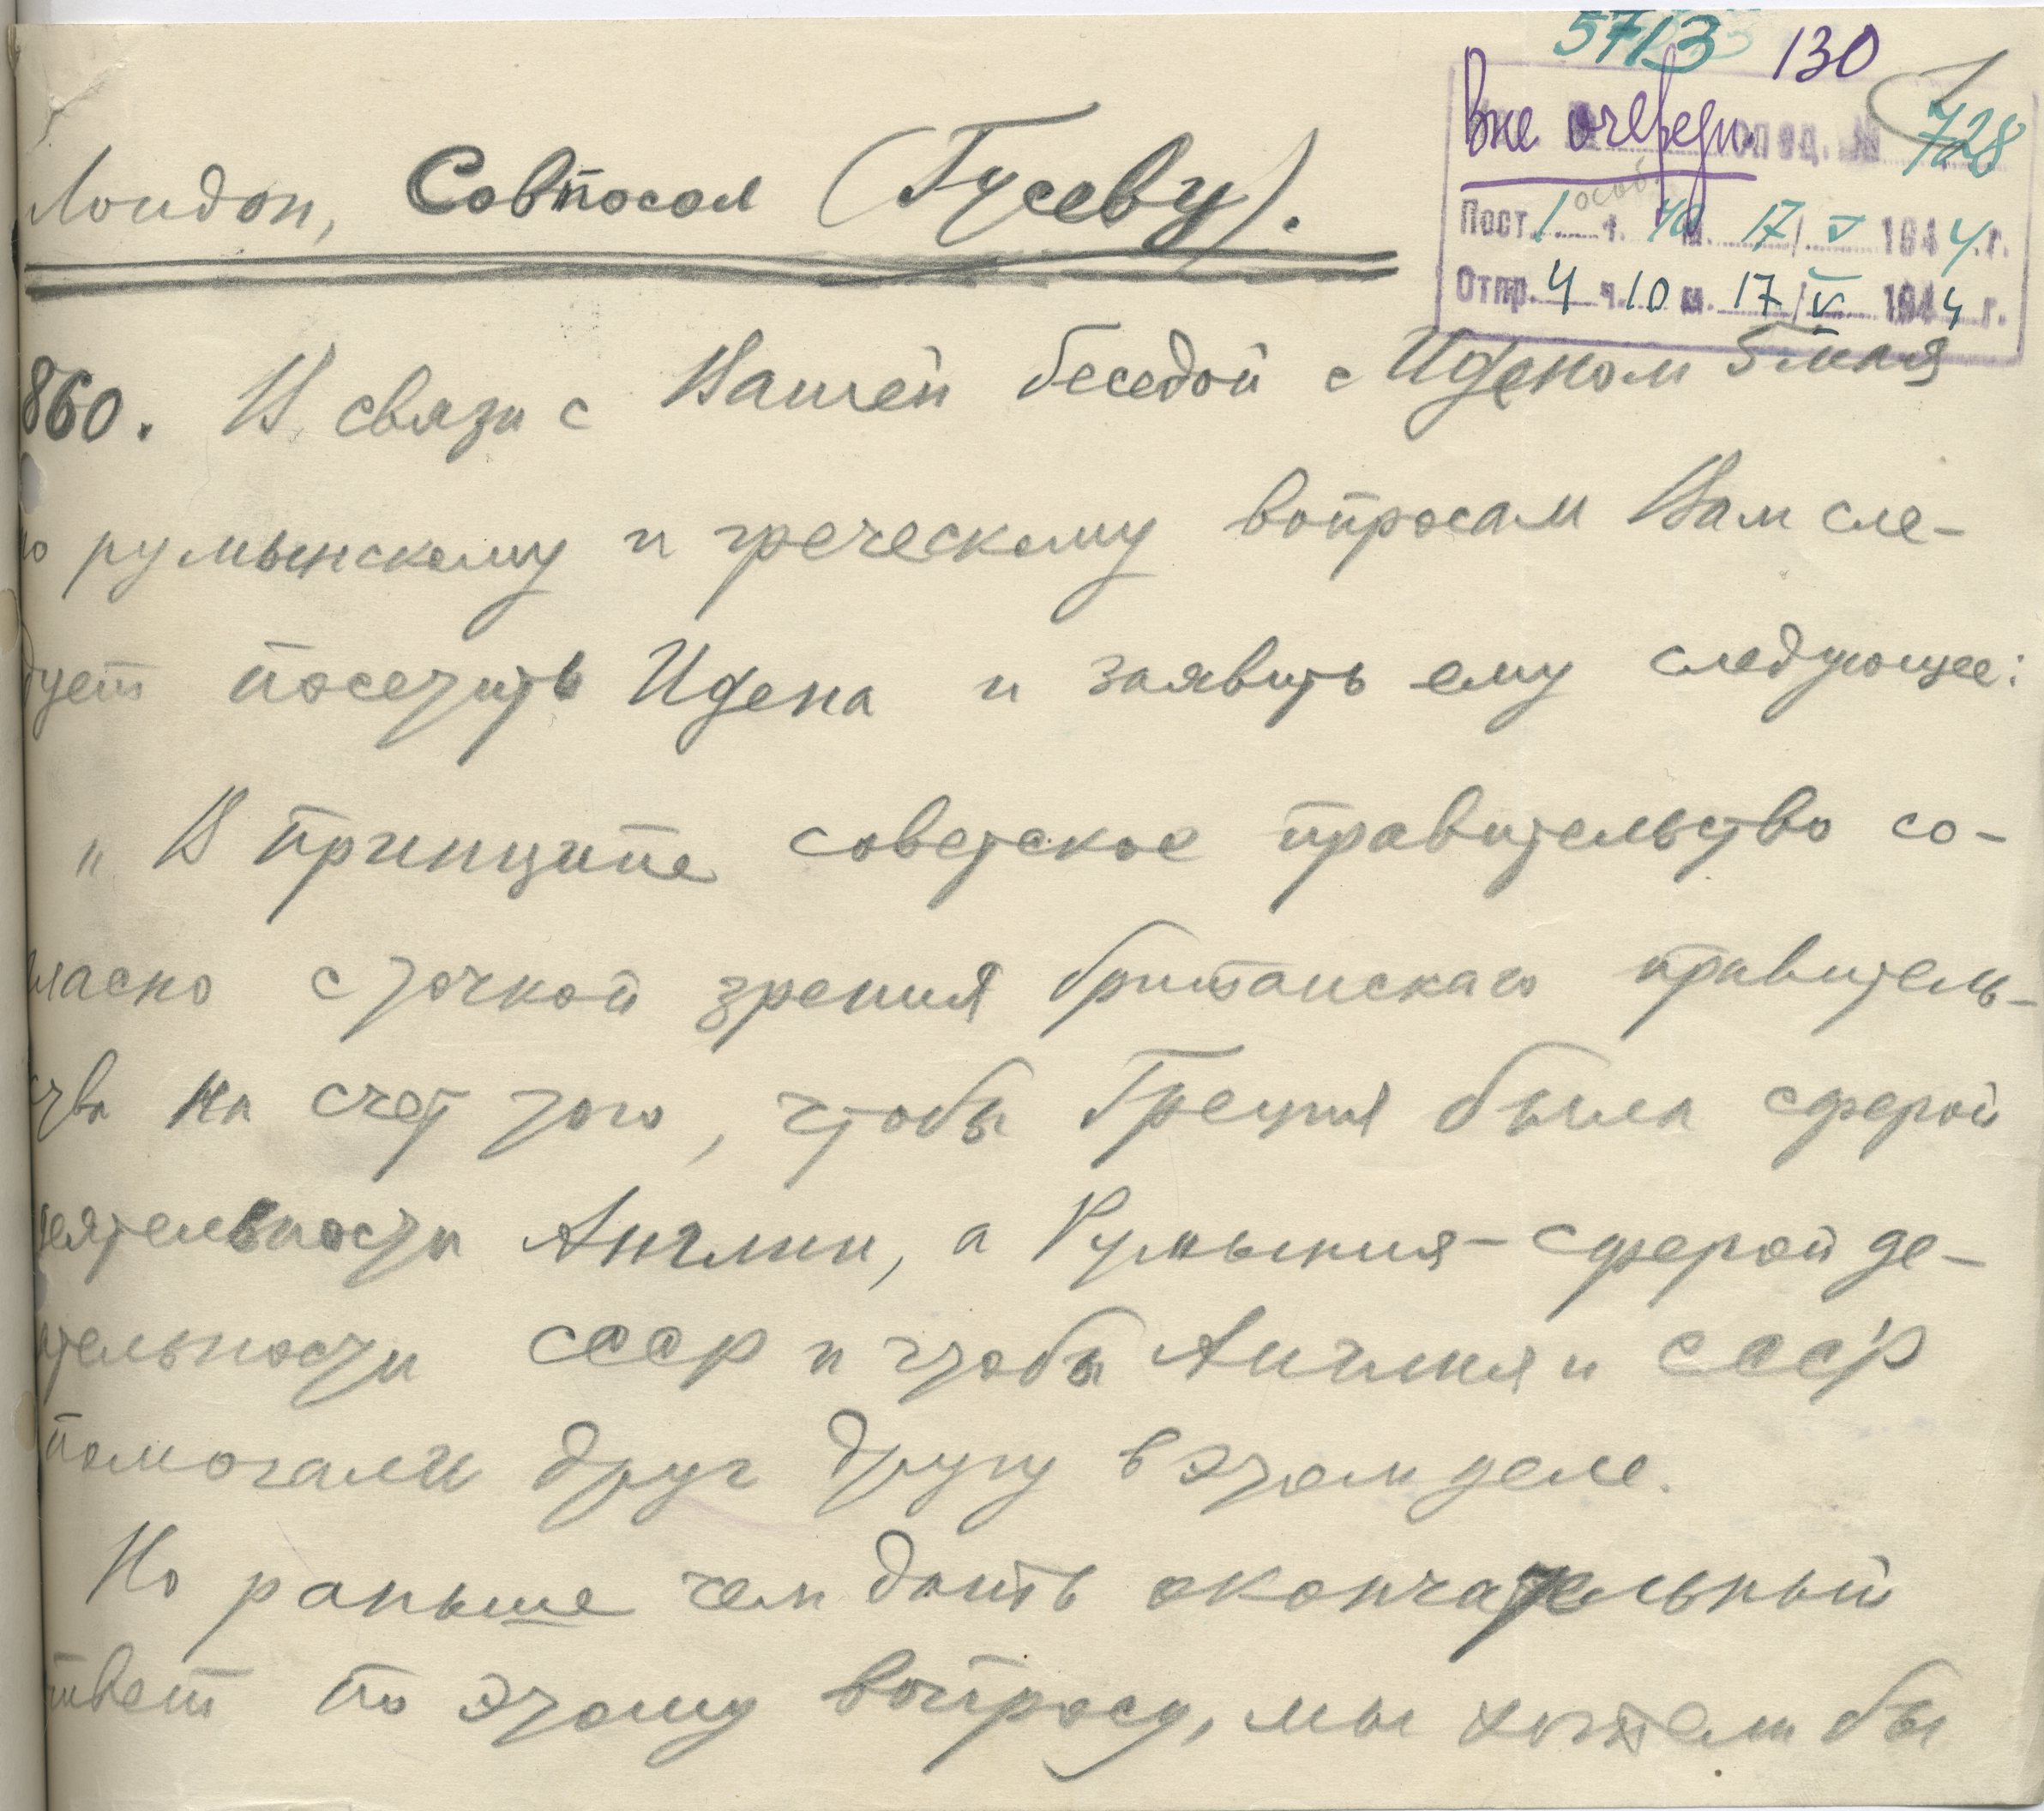 5713 130
Вне очереди спец. № 728
особ.
Пост. 1 ч. 40 м. 17/V 1944 г.
Отпр. 4 ч. 10 м. 17/V 1944 г.
London, Совпосол (Гусеву).
860. В связи с Вашей беседой с Иденом 5 мая
по румынскому и греческому вопросам Вам сле-
дует посетить Идена и заявить ему следующее:
„В принципе советское правительство со-
гласно с точкой зрения британскаго правитель-
ства на счет того, чтобы Греция была сферой
деятельности Англии, а Румыния – сферой де-
ятельности СССР и чтобы Англия и СССР
помогали друг другу в этом деле.
Но раньше чем дать окончательный
ответ по этому вопросу, мы хотели бы